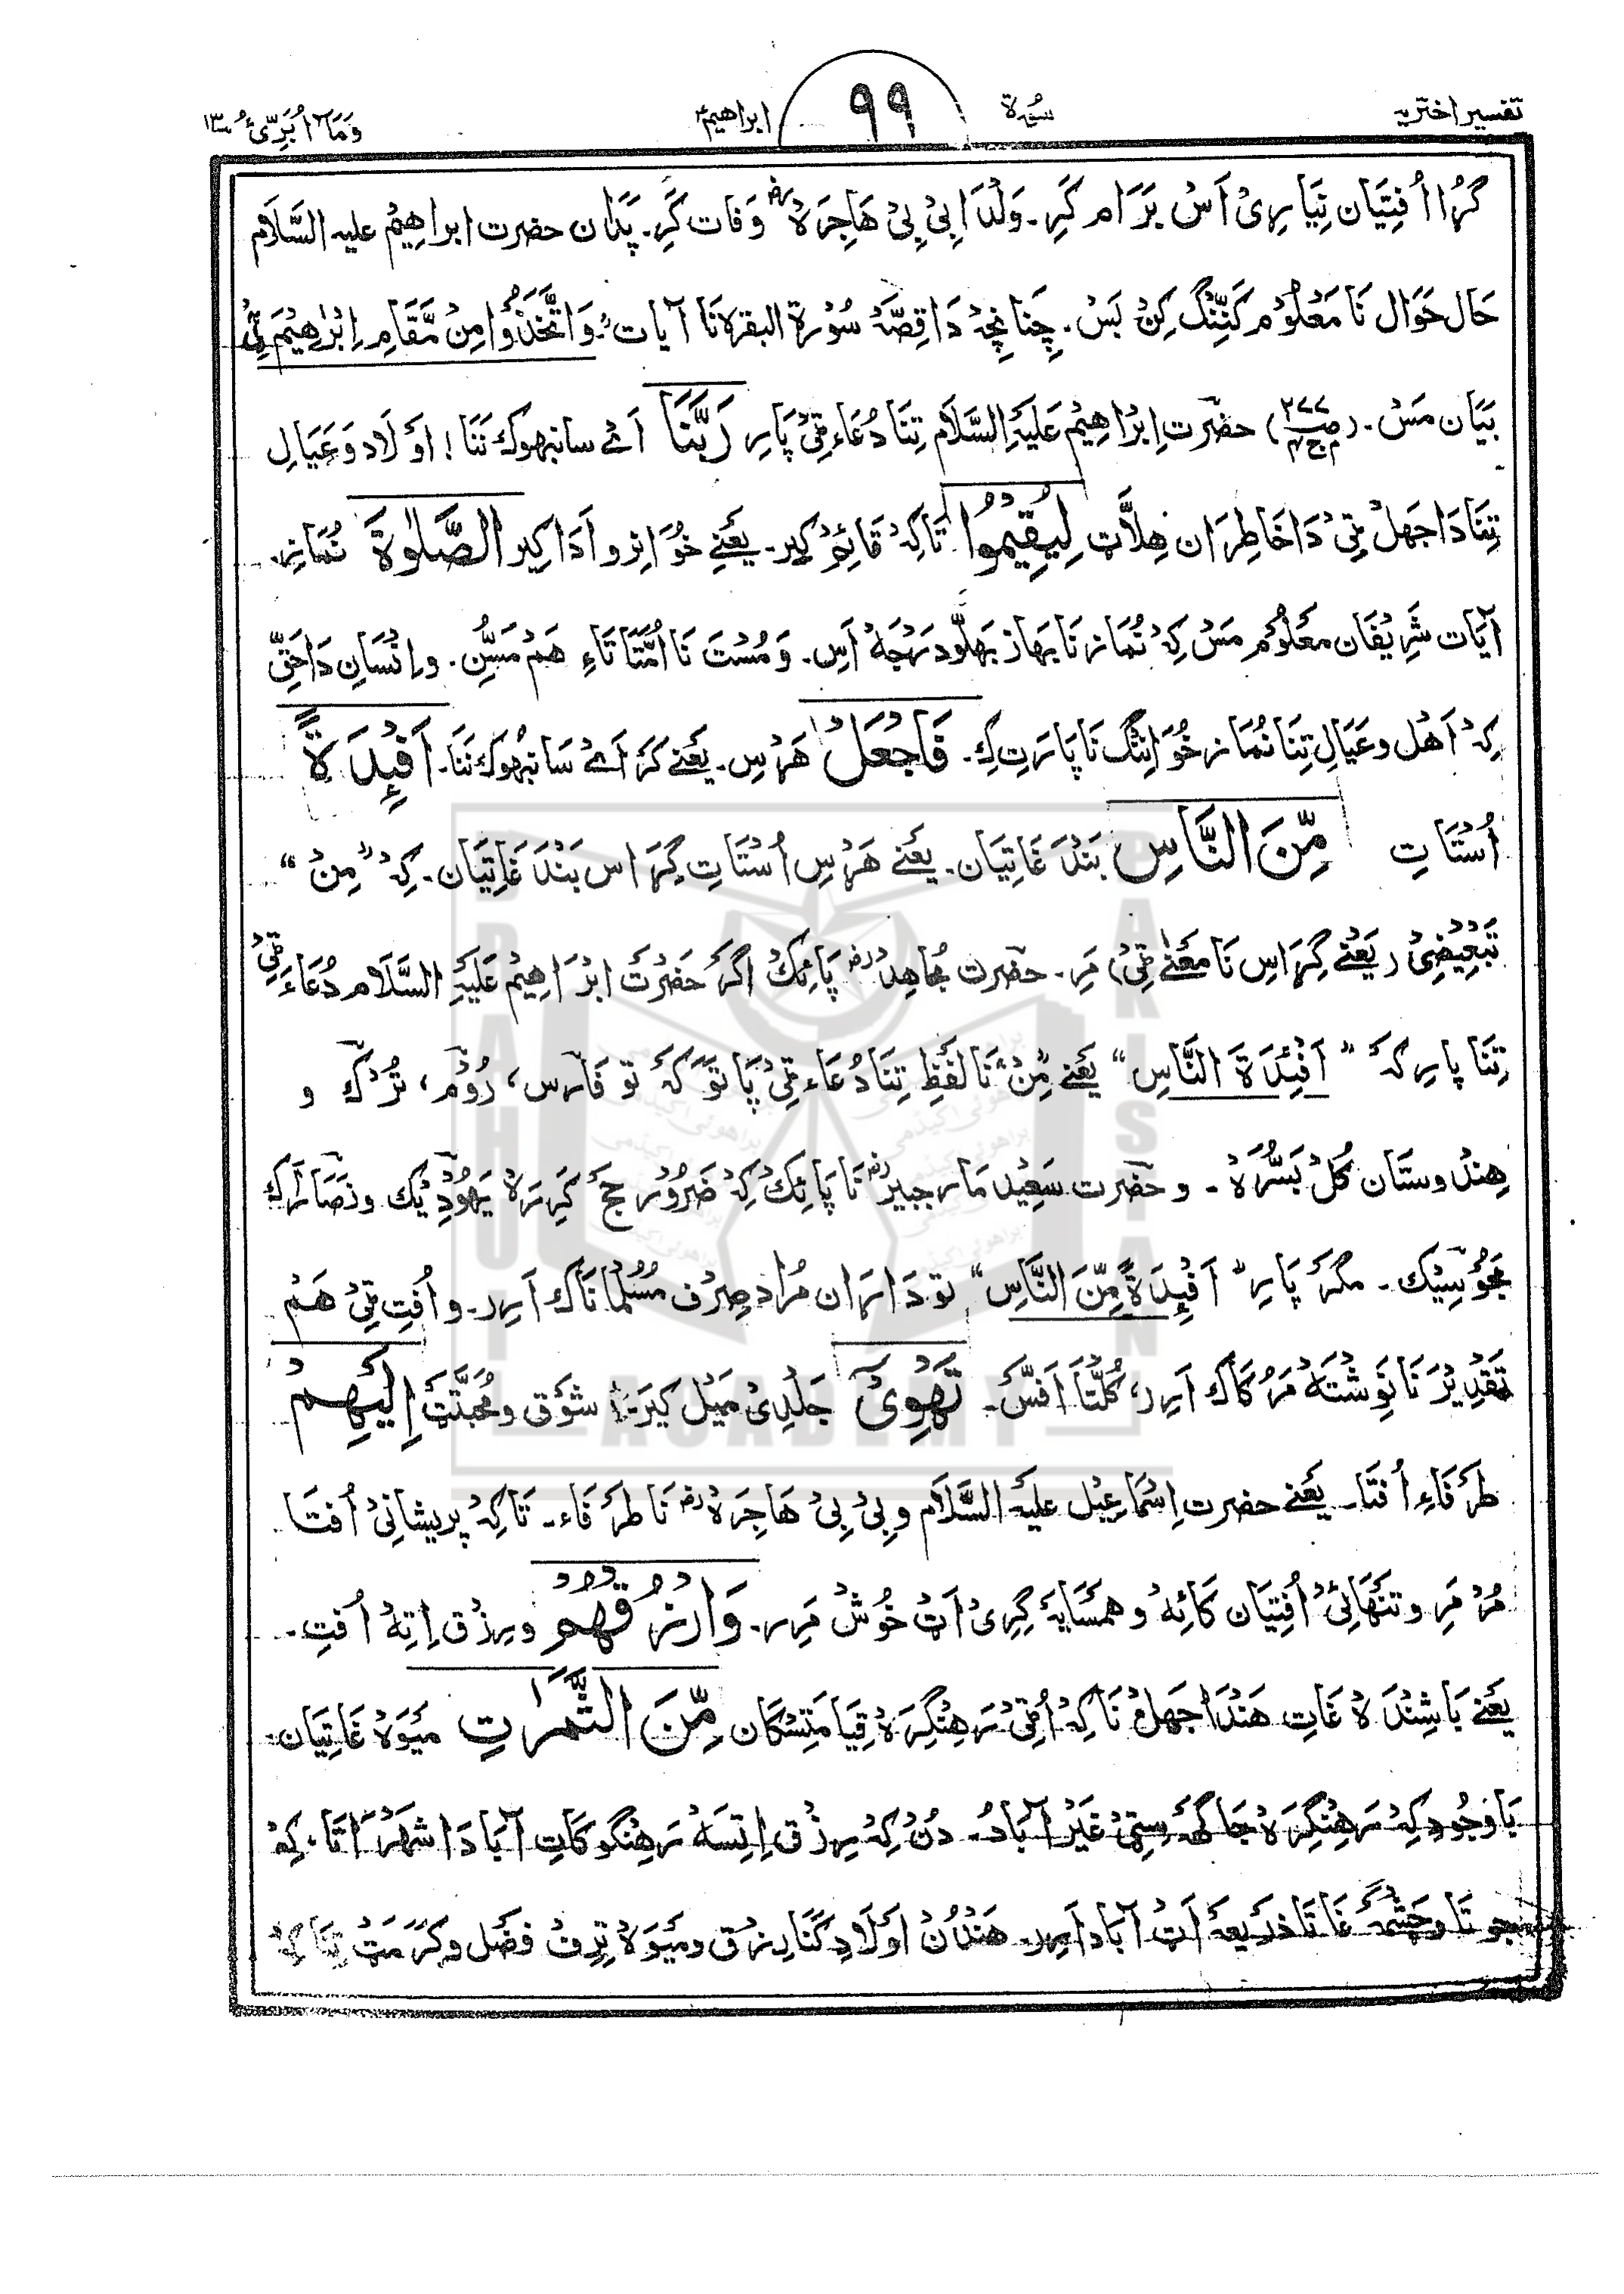 تفسیر اختریہ سُورة ٩٩ ابراهیم وَمَآ اُبَرِّئُ ١٣
گُڑا اُفتِیَان نِیَارِیْ اَسْ بَرَام کَرِ۔ وَلْدَا بِیْ بِیْ هَاجِرَهْ رض وَفَات کَرِ۔ پَدَان حضرت ابراهِیْمْ علیہ السَّلَام
حَال حَوَال نَا مَعْلُوْم کَنِّنْگ کِنْ بَسْ۔ چَنانِچہْ دَا قِصَّہْ سُوْرة البقرة نَا آیَات "وَاتَّخِذُوْا مِنْ مَّقَامِ اِبْرٰهِیْمَ" ٹِیْ
بَیَان مَسْ۔ (ص٢٧٧ ج) حضرت اِبْرَاهِیْمْ عَلَیْہِ السَّلَام تِنَا دُعَاء ٹِیْ پَارِ رَبَّنَا اَےْ سانبهوک نَنَا! اَوْلَاد وَعَیَالِ
تِنَا دَا جَهَلْ ٹِیْ دَا خَاطِرَان هِلَّاٹ لِیُقِیْمُوا تَاکِہْ قَائِمْ کِیر۔ یَعْنِے خُوَانِر و اَدَا کِیر الصَّلٰوةَ نُمَازِ۔
آیَات شَرِیْفَان مَعْلُوْم مَسْ کِہْ نُمَازنَا بهَاز بَهلُّو دَرْجَہْ اَسِ۔ وَمُسْتَ نَا اُمَّتَاتَاءِ هَمْ مَسُّنِ۔ و اِنْسَانِ دَا حَقِّ
کِہْ اَهْل و عَیَالِ تِنَا نُمَاز خُوَانِنْگ نَا پَارَتِ کِ۔ فَاجْعَلْ هَرْسِ۔ یَعْنِے کَرَ اَےْ سَانبْهوک نَنَا۔ اَفْئِدَةً
اُسْتَاتِ مِّنَ النَّاسِ بَنْدَغَاتِیَان۔ یَعْنِے هَرْسِ اُسْتَاتِ گِرَاس بَنْدَغَاتِیَان۔ کِہْ "مِنْ"
تَبْعِیْضِیْ (یَعْنِے گِرَاس نَا مَعْنٰے ٹِیْ) مَرِ۔ حضرت مُجَاهِدْ رض پَائِکْ اگَرْ حَضْرَتْ ابْرَاهِیْمْ عَلَیْہِ السَّلَام دُعَاءَ ٹِیْ
تِنَا پارِکَہْ "اَفْئِدَةَ النَّاسِ" یَعْنِے "مِنْ" نَا لَفْظِ تِنَا دُعَاء ٹِیْ پَاتَوْکَہْ تو فَارَس، رُوْم، تُرْکْ و
هِنْدوستَان کُلْ بَسُّرَهْ۔ و حضرت سَعِیْد مَار جبیر رض نَا پَائِکْ کِہْ ضَرُوْر حجّ کَرِرَهْ یَهُوْدِیْک و نَصَارَاک
مَجُوْسِیْک۔ مگَرْ پَارِ "اَفْئِدَةً مِّنَ النَّاسِ" تو دَارَان مُرَاد صِرْف مُسُلْمَانَاک اَرِر۔ و اُفتِ ٹِیْ هَمْ
تَقْدِیْرْ نَا نَوِشْتَہْ مَرُکَاک اَرِر، کُلْتَا اَفَسْ۔ تَهْوِیْٓ جَلْدِیْ مَیْل کِیرَ شَوْق و مُحَبَّتَٹْ اِلَیْهِمْ
طَرَفَاءِ اُفتَا۔ یَعْنِے حضرت اِسْمَاعِیْل علیہ السَّلَام و بِیْ بِیْ هَاجِرَهْ رض نَا طَرَفَاء۔ تَاکِہْ پریشَانِیْ اُفتَا
مُرْ مَرِ و تَنْهَائِیْ اُفتِیَان کَائِہْ و هَمسَایَہْ گِرِیْ اَٹْ خُوْشْ مَرِر۔ وَارْزُقْهُمْ و رِزْق اِتِہْ اُفتِ۔
یَعْنِے بَاشِنْدَهْ غَاتِ هَنْدَا جَهَلْ نَا کِہْ اُٹِیْ رَهِنْگِرَهْ قِیَامَتِسْکَان مِّنَ الثَّمَرٰتِ مَیْوَهْ غَاتِیَان۔
بَاوجُودِکِہْ رَهِنْگِرَهْ جَاگَهْ سِٹِیْ غَیْر آبَادْ۔ دُنْ کِہْ رِزْق اِتِسَہْ رَهِنْگوکَاتِ آبَادَا شَهْرَاتَا، کِہْ
جو تَا و چَشْمَہْ غَاتَا ذَرِیعَہْ اَٹْ آبَاد اَرِر۔ هَنْدُنْ اَوْلَادِ کَنَا رِزق و مَیْوَهْ تِرِفْ فَضْل و کَرَمَتْ تِنَا
BRAHUI ACADEMY PAKISTAN